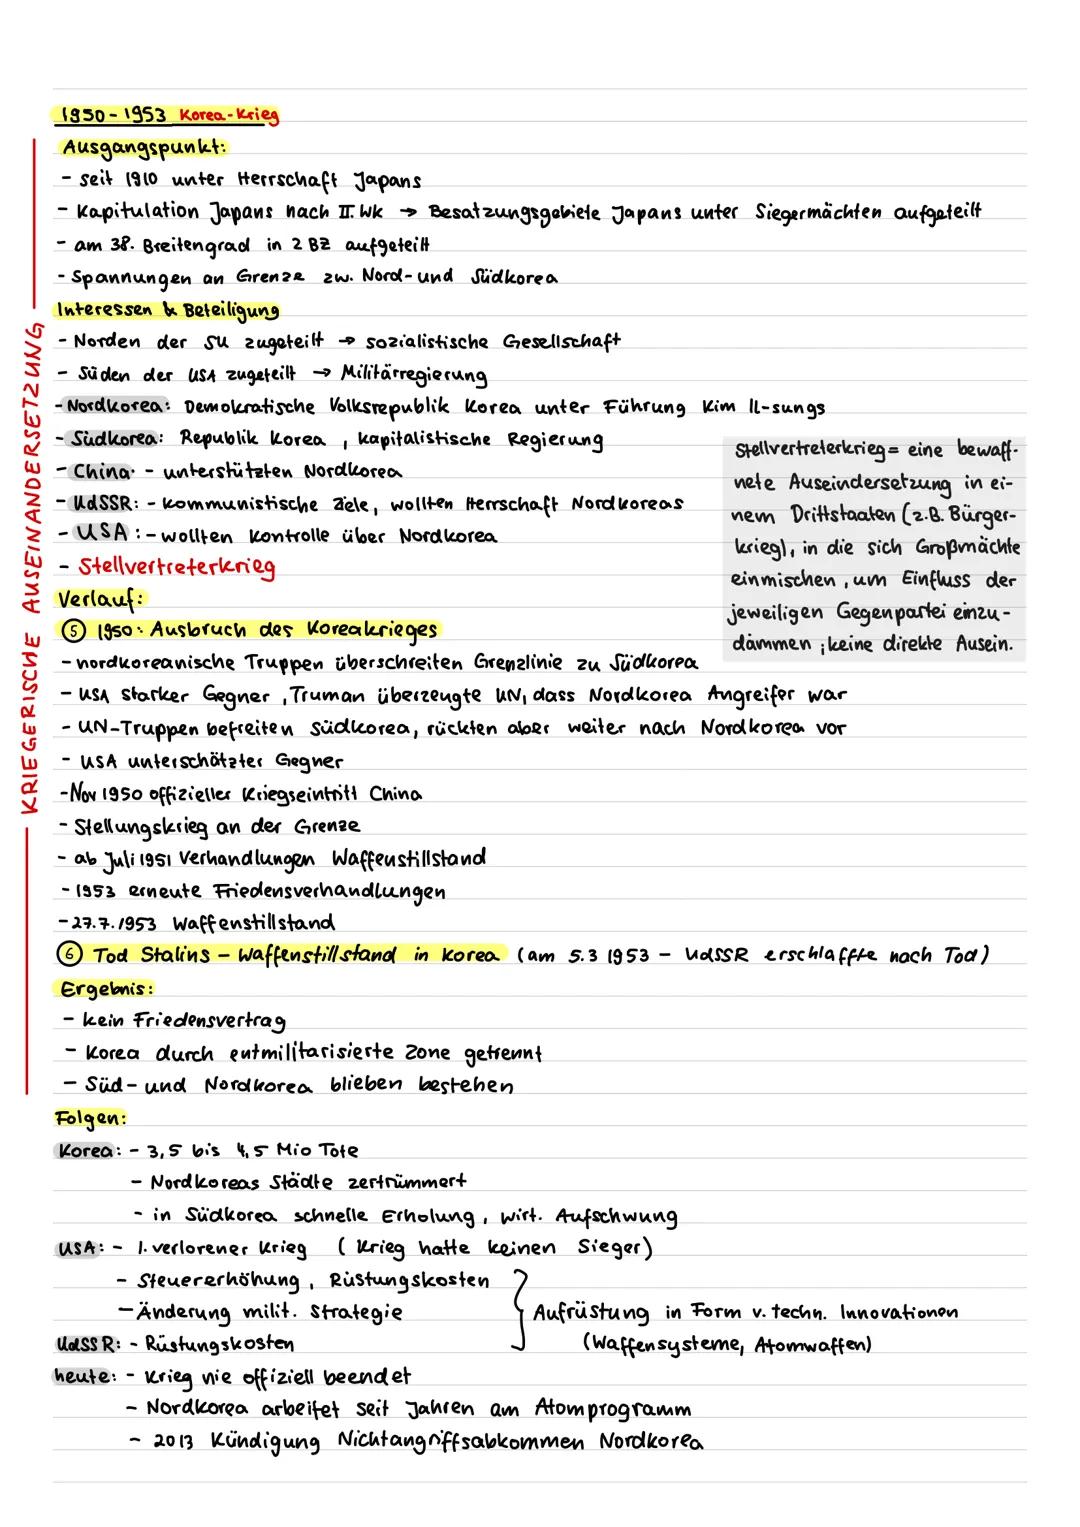 1950-1953 Korea-Krieg
Ausgangspunkt:
- seit 1910 unter Herrschaft Japans
- Kapitulation Japans nach II. Wk → Besatzungsgebiete Japans unter Siegermächten aufgeteilt
- am 38. Breitengrad in 2 BZ aufgeteilt
- Spannungen an Grenze zw. Nord- und Südkorea
Interessen & Beteiligung
- Norden der SU zugeteilt → sozialistische Gesellschaft
- Süden der USA zugeteilt → Militärregierung
- Nordkorea: Demokratische Volksrepublik Korea unter Führung Kim Il-sungs
- Südkorea: Republik Korea, kapitalistische Regierung
- China: - unterstützten Nordkorea
- UdSSR: - kommunistische Ziele, wollten Herrschaft Nordkoreas
- USA: - wollten Kontrolle über Nordkorea
- Stellvertreterkrieg
Stellvertreterkrieg = eine bewaff-
nete Auseindersetzung in ei-
nem Drittstaaten (z.B. Bürger-
krieg), in die sich Großmächte
einmischen, um Einfluss der
jeweiligen Gegenpartei einzu-
dämmen; keine direkte Ausein.
Verlauf:
⑤ 1950: Ausbruch des Koreakrieges
- nordkoreanische Truppen überschreiten Grenzlinie zu Südkorea
- USA starker Gegner, Truman überzeugte UN, dass Nordkorea Angreifer war
- UN-Truppen befreiten Südkorea, rückten aber weiter nach Nordkorea vor
- USA unterschätzter Gegner
- Nov 1950 offizieller Kriegseintritt China
- Stellungskrieg an der Grenze
- ab Juli 1951 Verhandlungen Waffenstillstand
- 1953 erneute Friedensverhandlungen
- 27.7.1953 Waffenstillstand
⑥ Tod Stalins - Waffenstillstand in Korea (am 5.3 1953 - UdSSR erschlaffte nach Tod)
Ergebnis:
- kein Friedensvertrag
- Korea durch entmilitarisierte Zone getrennt
- Süd- und Nordkorea blieben bestehen
KRIEGERISCHE AUSEINANDERSETZUNG
Folgen:
Korea: - 3,5 bis 4,5 Mio Tote
- Nordkoreas Städte zertrümmert
- in Südkorea schnelle Erholung, wirt. Aufschwung
USA: - 1. verlorener Krieg (Krieg hatte keinen Sieger)
- Steuererhöhung, Rüstungskosten
- Änderung milit. Strategie
Aufrüstung in Form v. techn. Innovationen
UdSSR: - Rüstungskosten
(Waffensysteme, Atomwaffen)
heute: - Krieg nie offiziell beendet
- Nordkorea arbeitet seit Jahren am Atomprogramm
- 2013 Kündigung Nichtangriffsabkommen Nordkorea